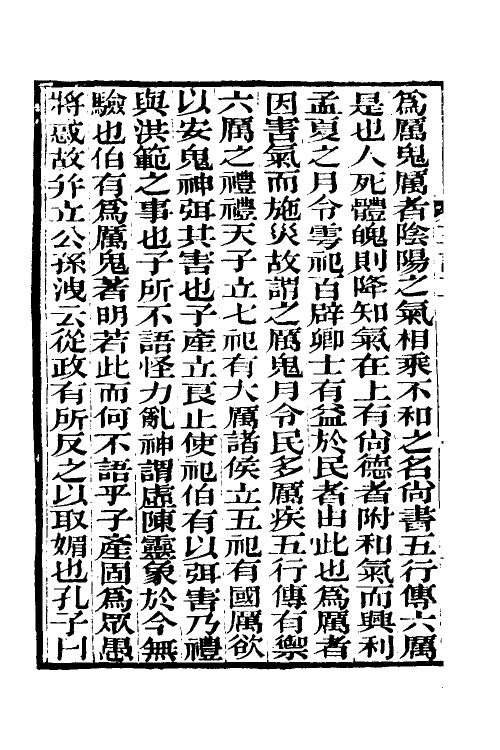 爲厲鬼厲者陰陽之氣相乘不和之名尙書五行傳六厲
是也人死體魄則降知氣在上有尙德者附和氣而興利
孟夏之月令雩祀百辟卿士有益於民者由此也爲厲者
因害氣而施災故謂之厲鬼月令民多厲疾五行傳有禦
六厲之禮禮天子立七祀有大厲諸侯立五祀有國厲欲
以安鬼神弭其害也子產立良止使祀伯有以弭害乃禮
與洪範之事也子所不語怪力亂神謂虛陳靈象於今無
驗也伯有爲厲鬼著明若此而何不語乎子產固爲眾愚
將惑故并立公孫洩云從政有所反之以取媚也孔子曰